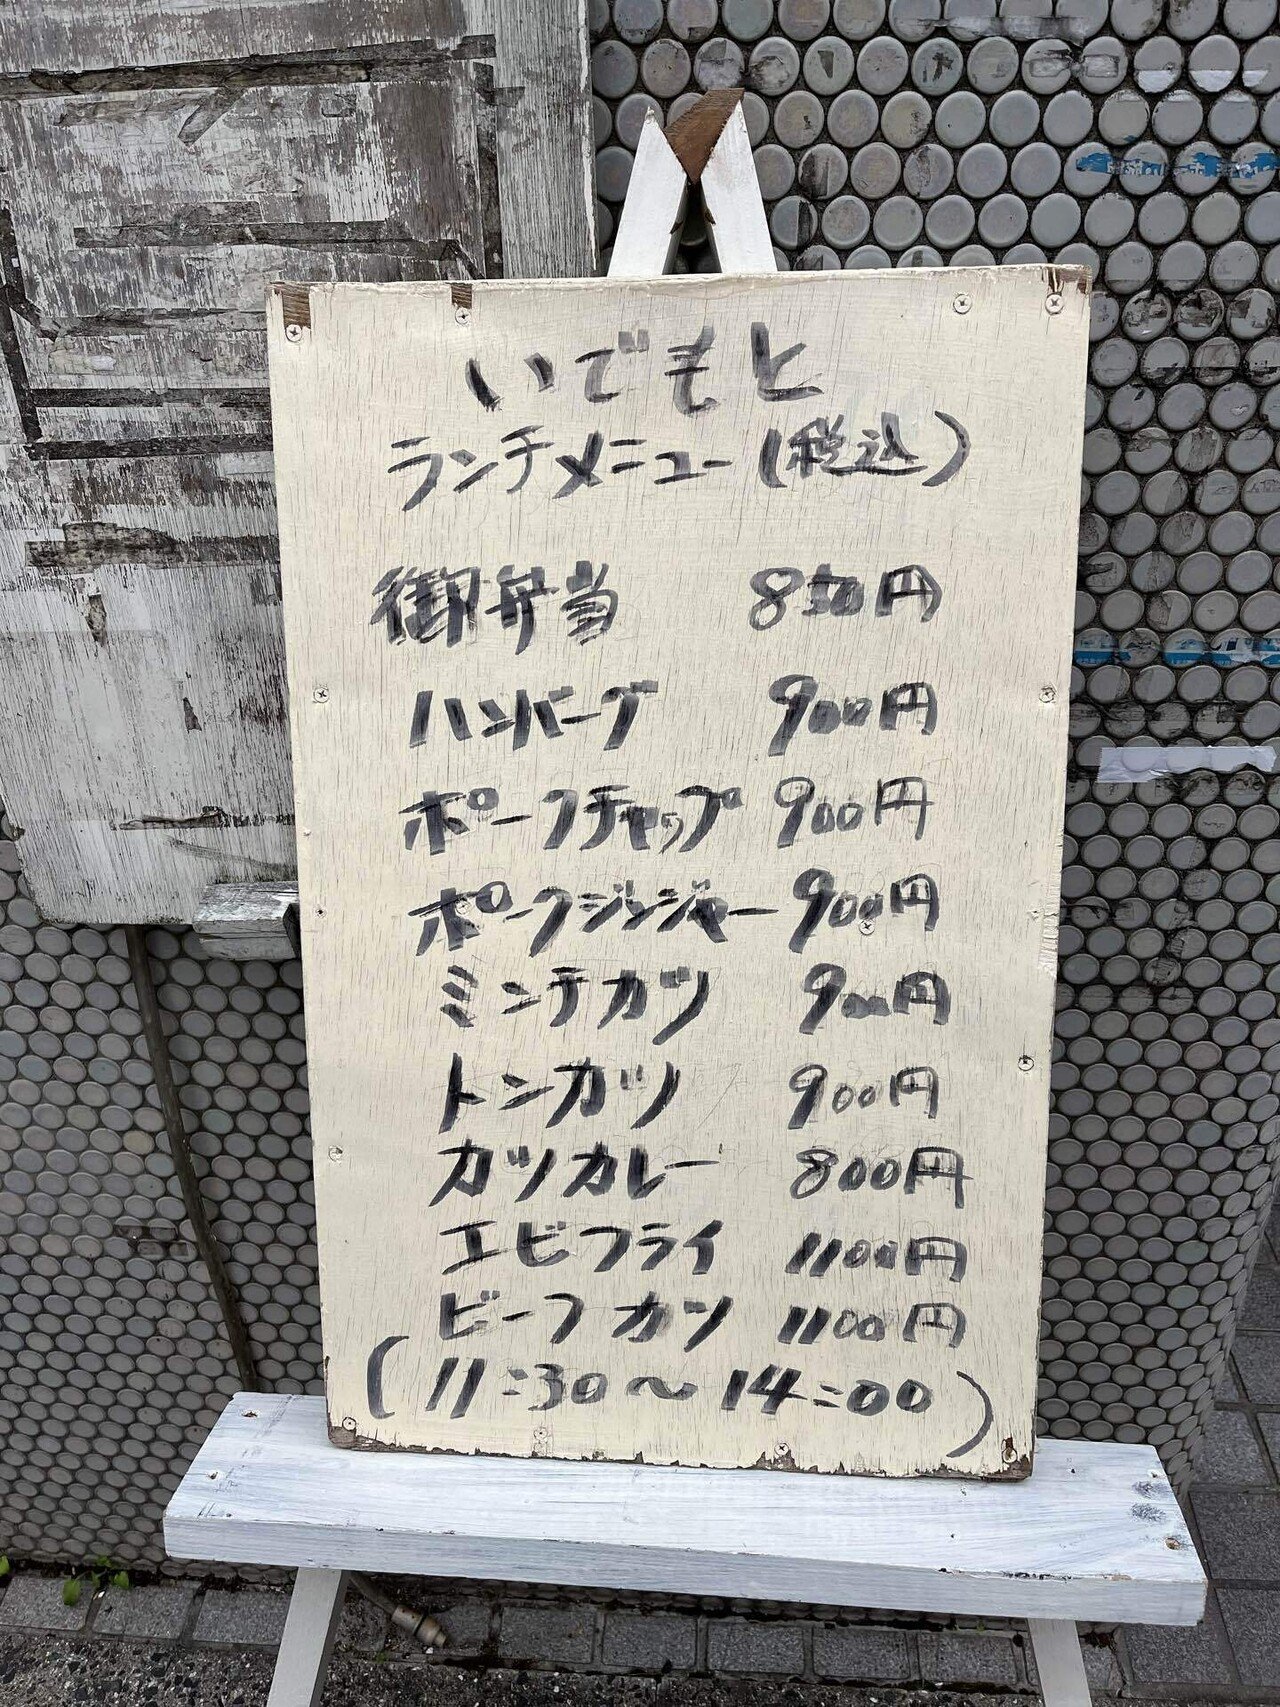 いでもと
ランチメニュー(税込)
御弁当 850円
ハンバーグ 900円
ポークチャップ 900円
ポークジンジャー 900円
ミンチカツ 900円
トンカツ 900円
カツカレー 800円
エビフライ 1100円
ビーフカツ 1100円
(11:30〜14:00)